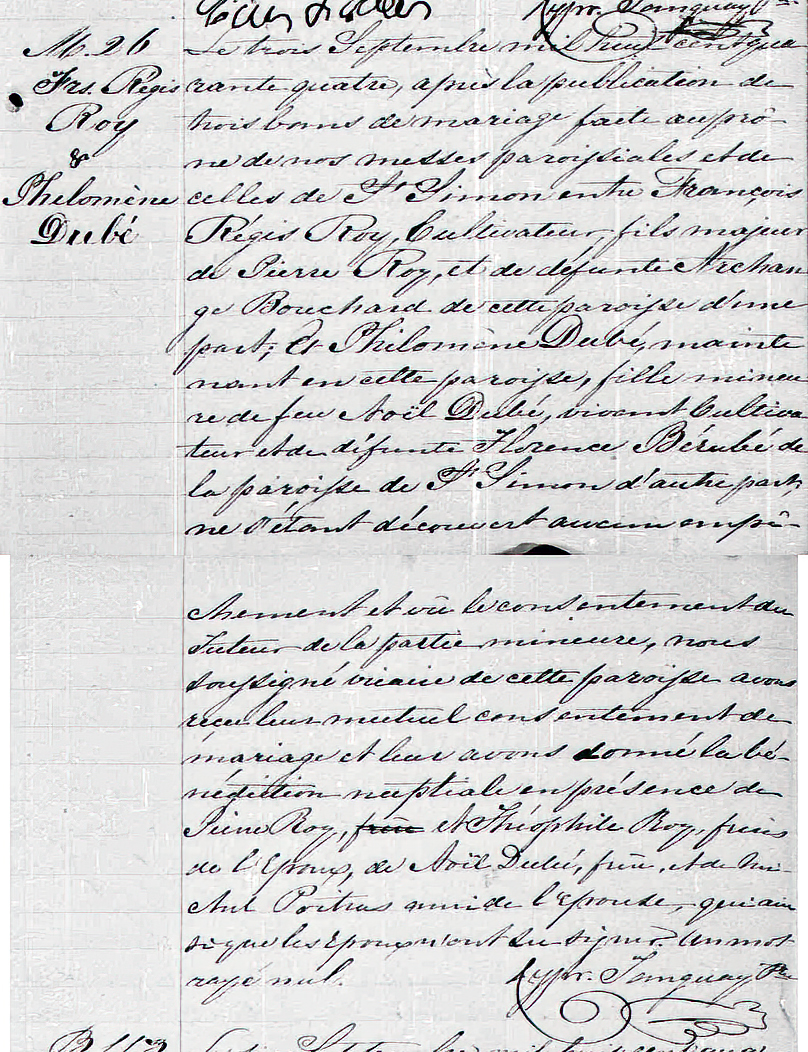 M. 26
Frs. Régis
Roy
&
Philomène
Dubé
Cypr. Tanguay Ptre
Le trois Septembre mil huit cent qua
rante quatre, après la publication de
trois bans de mariage faite au prô-
ne de nos messes paroissiales et de
celles de St Simon entre François
Régis Roy, Cultivateur, fils majeur
de Pierre Roy, et de défunte Archan
ge Bouchard de cette paroisse d'une
part; Et Philomène Dubé, mainte
nant en cette paroisse, fille mineu
re de feu Noël Dubé, vivant Cultiva
teur et de défunte Florence Bérubé de
la paroisse de St Simon d'autre part;
ne s'étant découvert aucun empê-
chement et vu le consentement du
Tuteur de la partie mineure, nous
soussigné vicaire de cette paroisse avons
reçu leur mutuel consentement de
mariage et leur avons donné la bé-
nédiction nuptiale en présence de
Pierre Roy, frère et Théophile Roy, frères
de l'Epoux, de Noël Dubé, frère, et de Mi-
chel Poitras ami de l'Epouse, qui ain
si que les Epoux n'ont su signer. Un mot
rayé nul.
Cypr. Tanguay Ptre